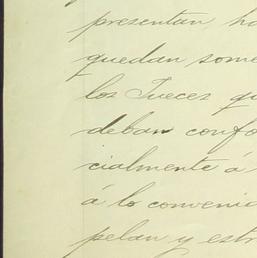 presentan, ha
quedan some
los Jueces qu
deban confo
cialmente á
á lo convenid
pelan y estr